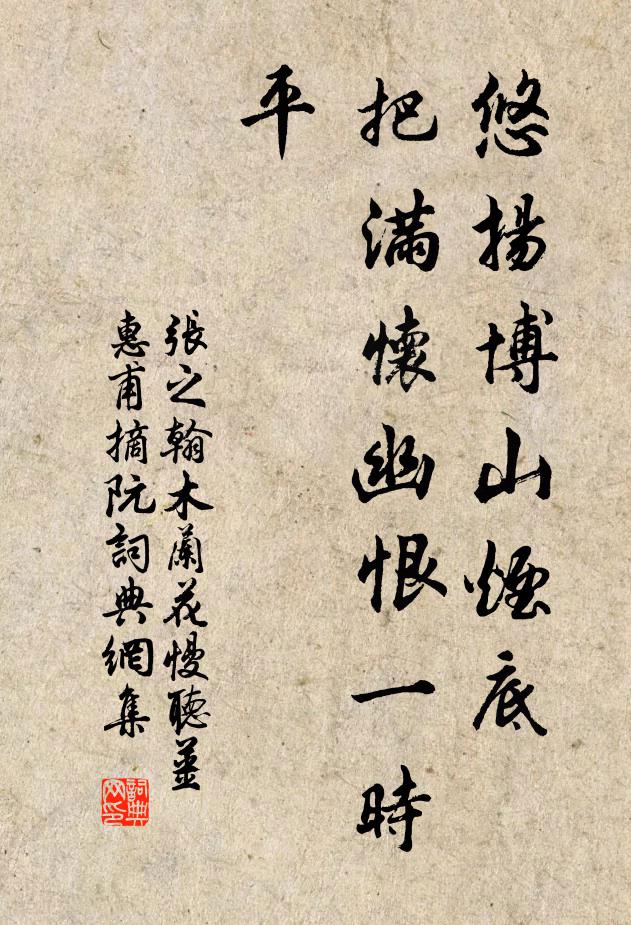 悠揚博山煙底
把滿懷幽恨一時
平
張之翰木蘭花慢聽姜
惠甫摘阮詞典網集
詞典网印